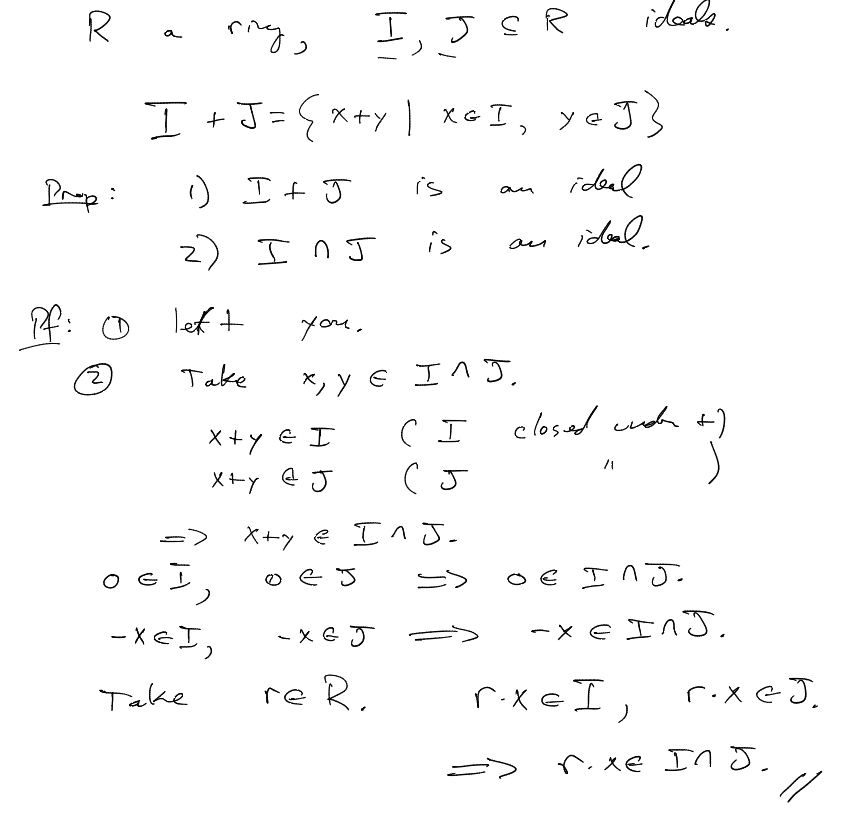 R a ring, I, J ⊆ R ideals.
I + J = { x+y | x ∈ I, y ∈ J }
Prop: 1) I + J is an ideal
2) I ∩ J is an ideal.
Pf: ① left you.
② Take x, y ∈ I ∩ J.
x+y ∈ I ( I closed under +)
x+y ∈ J ( J " )
=> x+y ∈ I ∩ J.
0 ∈ I, 0 ∈ J => 0 ∈ I ∩ J.
-x ∈ I, -x ∈ J => -x ∈ I ∩ J.
Take r ∈ R. r·x ∈ I, r·x ∈ J.
=> r·x ∈ I ∩ J. //